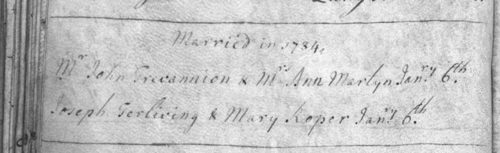 Married in 1734.
Mr John Trevannion & Mrs Ann Marlyn Janry 6th.
Joseph Terliving & Mary Roper Janry 6th.